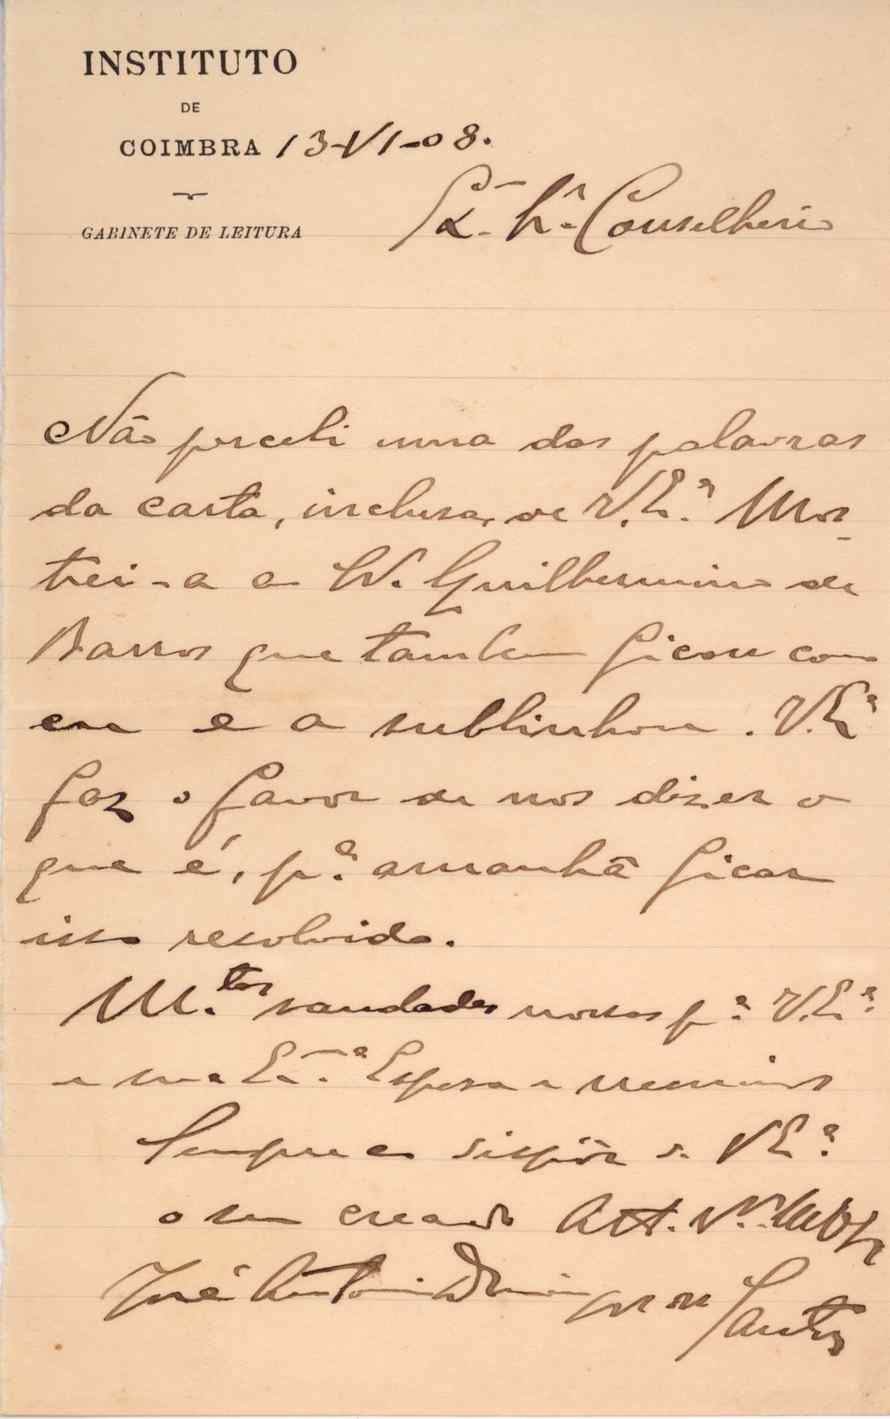 INSTITUTO
DE
COIMBRA 13-VI-08.
GABINETE DE LEITURA
Ex.mo Sr. Conselheiro
Não percebi uma das palavras
da carta, inclusa, de V. Ex.ª Mos-
trei-a a W. Guilhermino de
Barros que tambem ficou com
ella e a sublinhou. V. Ex.ª
faz o favor de nos dizer o
que é, p.ª amanhã ficar
isso resolvido.
M.tos saudades nossas p.ª V. Ex.ª
e sua Ex.ma Esposa e meninos
Sempre ao dispôr de V. Ex.ª
o seu creado Att.
José Antonio Domingos dos Santos